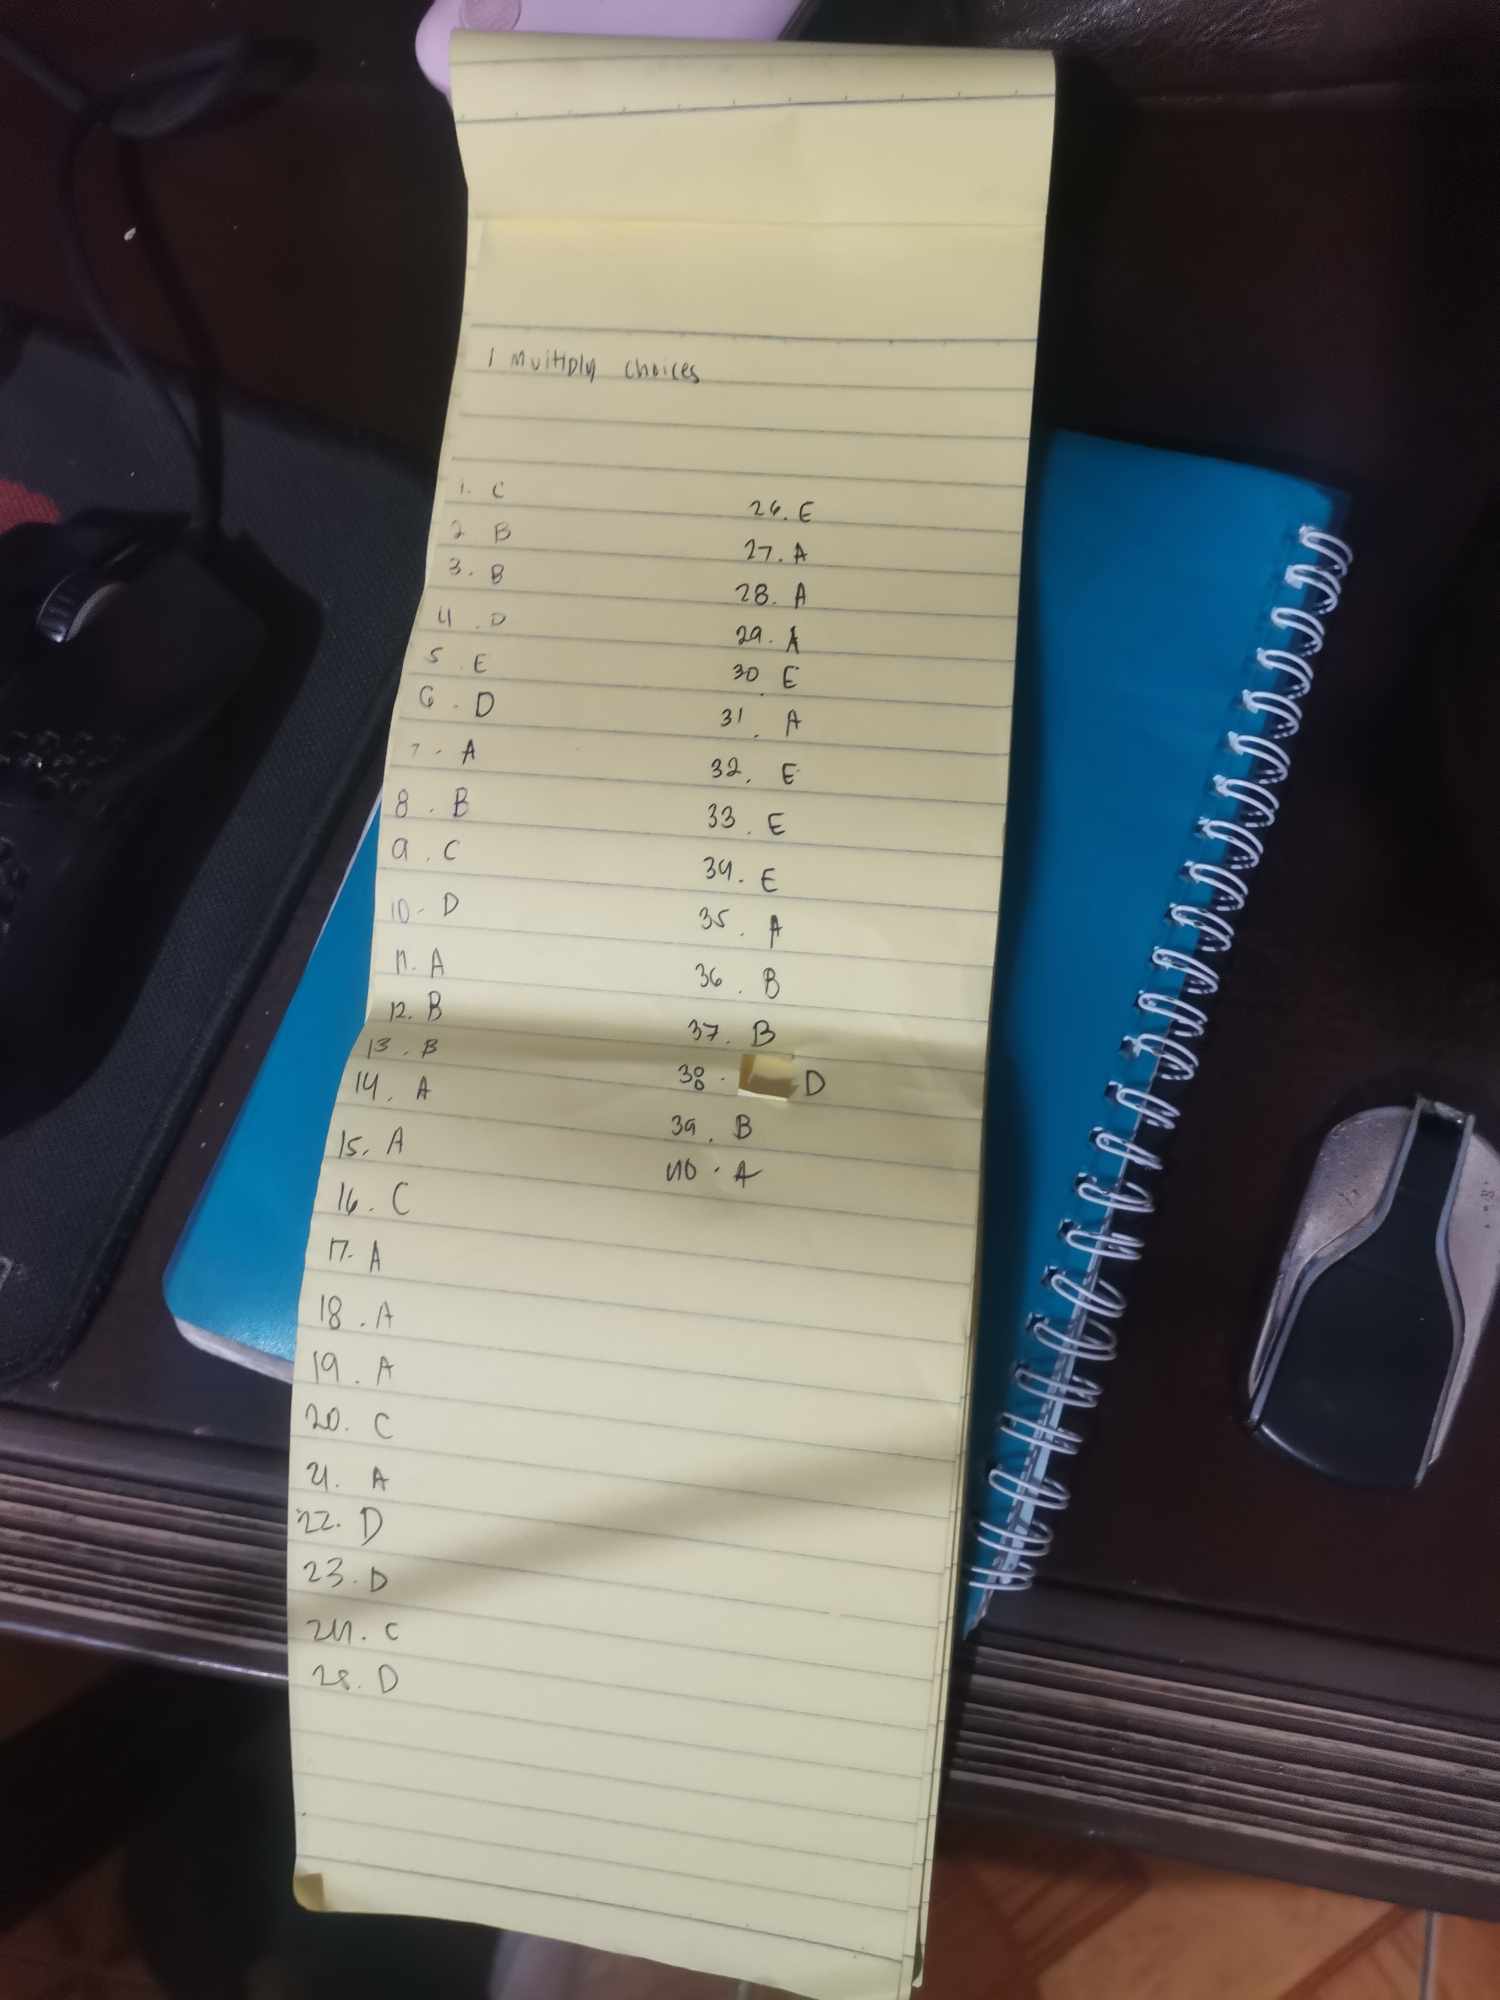 1 Multiply choices
1. C
2 B
3. B
4. D
5. E
6. D
7. A
8. B
9. C
10. D
11. A
12. B
13. B
14. A
15. A
16. C
17. A
18. A
19. A
20. C
21. A
22. D
23. D
24. C
25. D
26. E
27. A
28. A
29. A
30. E
31. A
32. E
33. E
34. E
35. A
36. B
37. B
38. D
39. B
40. A